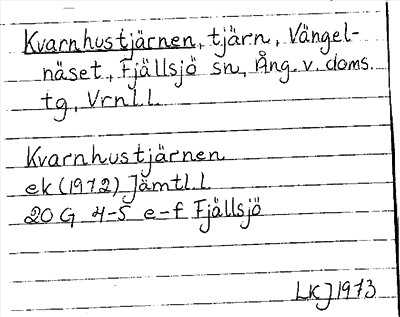 Kvarnhustjärnen, tjärn, Vängel-
näset, Fjällsjö sn, Ång. v. doms.
tg, Vrnl. l.
Kvarnhustjärnen
ek (1972) Jämtl. l
20 G 4-5 e-f Fjällsjö
LKJ 1973